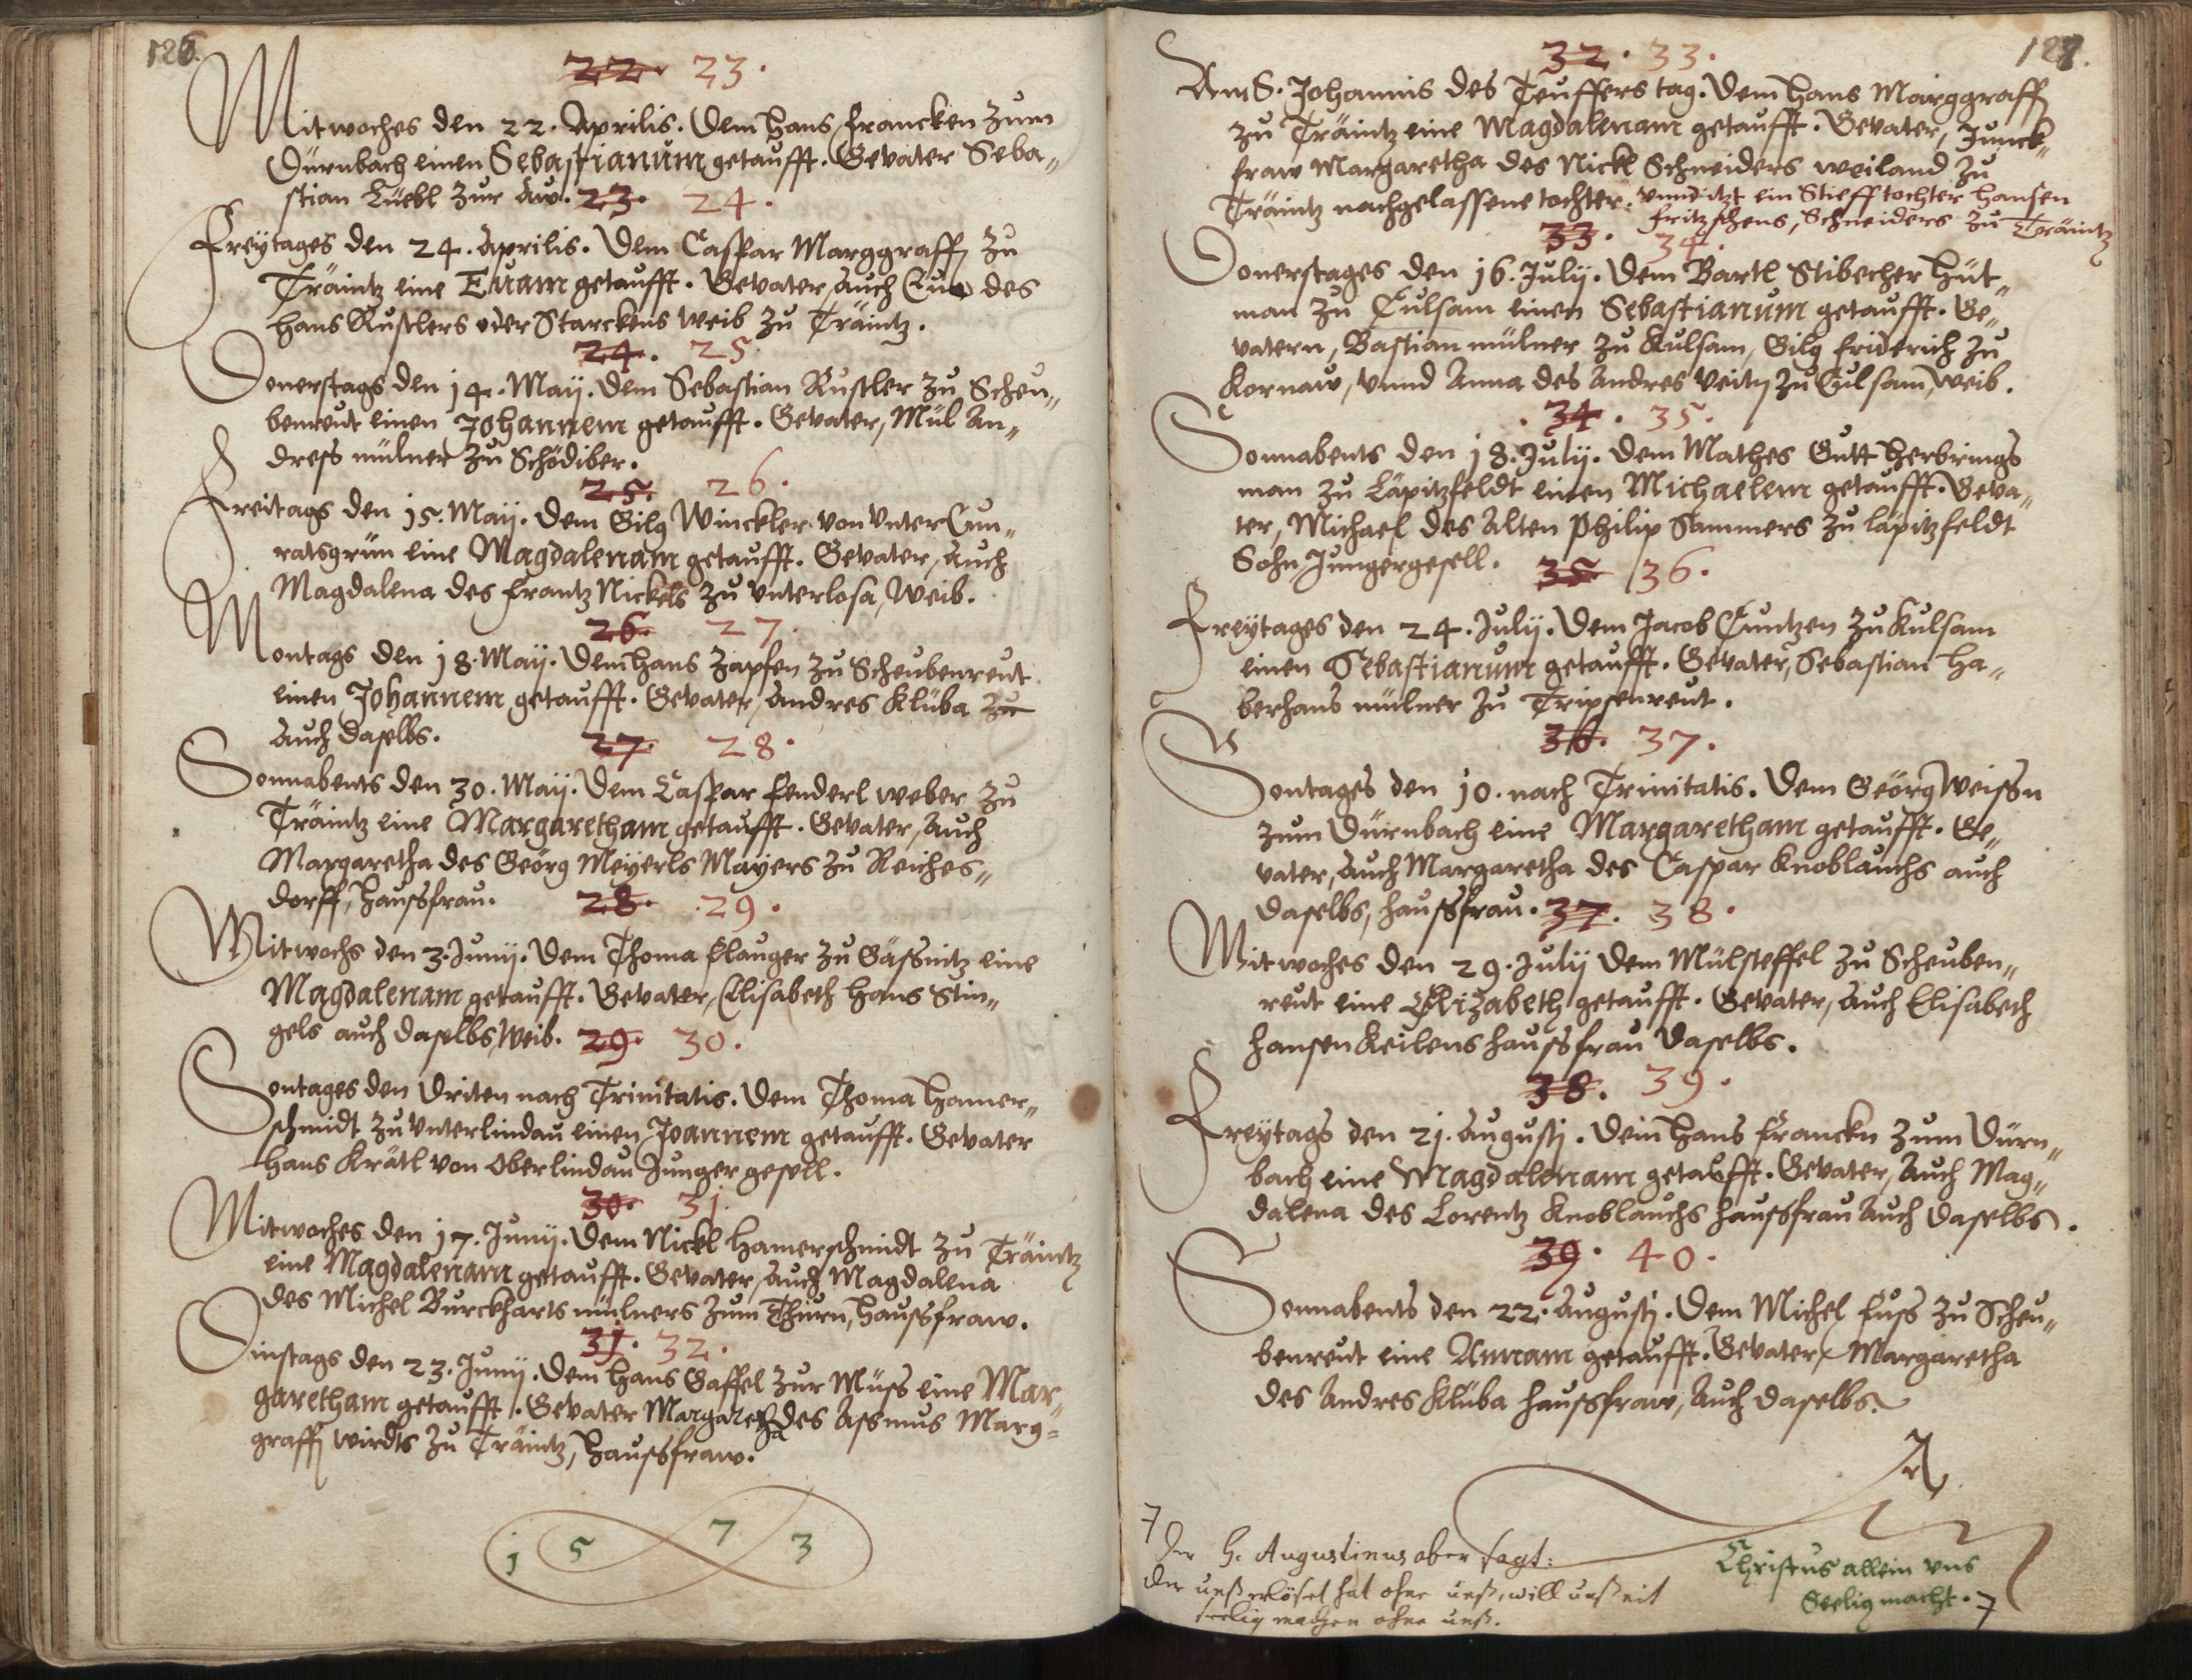 126.
22. 23.
Mitwoches den 22. Aprilis. Dem Hans Francken zum
Dürnbach einen Sebastianum getaufft. Gevater Seba„
stian Lüebl zur Aw. 23. 24.
Freytages den 24. Aprilis. Dem Caspar Marggraff zu
Träintz eine Evam getaufft. Gevater, auch Eua des
Hans Rustlers oder Starckens weib zu Träintz.
24. 25.
Donerstags den 14. Maij. Dem Sebastian Rustler zu Scheu„
benreut einen Johannem getaufft. Gevater, Mül An„
dress mülner zu Schödiber.
25. 26.
Freitags den 15. Maij. Dem Gilg Winckler von Vnter Cun„
ratsgrün eine Magdalenam getaufft. Gevater, Auch
Magdalena des Frantz Nickels zu Vnterlosa, Weib.
26. 27.
Montags den 18. Maij. Dem Hans Zapfen zu Scheubenreut
einen Johannem getaufft. Gevater, Andres Klüba zu
auch daselbs.
27. 28.
Sonnabents den 30. Maij. Dem Caspar Fenderl weber zu
Träintz eine Margaretham getaufft. Gevater, Auch
Margaretha des Geörg Meyerls Mayers zu Reiches„
dorff, haussfrau.
28. 29.
Mitwochs den 3. Junij. Dem Thoma Plauger zu Gässnitz eine
Magdalenam getaufft. Gevater, Elisabeth Hans Stin„
gels auch daselbs, weib. 29. 30.
Sontages den Driten nach Trinitatis. Dem Thoma Hamer„
schmidt zu Vnterlindau einen Joannem getaufft. Gevater
Hans Krätl von Oberlindau Junger gesell.
30. 31.
Mitwoches den 17. Junij. Dem Nickl Hamerschmidt zu Träintz
eine Magdalenam getaufft. Gevater, auch Magdalena
des Michel Burckharts mülners zum Thurn, haussfraw.
31. 32.
Dinstags den 23. Junij. Dem Hans Gaffel zur Müss eine Mar„
garetham getaufft. Gevater Margaretha des Assmus Marg„
graff wirdts zu Träintz, haussfraw.
1 5 7 3
127.
32. 33.
Am S. Johannis des Teuffers tag. Dem Hans Marggraff
zu Träintz eine Magdalenam getaufft. Gevater, Junck„
fraw Margaretha des Nickl Schneiders weiland zu
Träintz nachgelassene tochter. Vnnd itzt ein Stieff tochter Hansen
Fritzschens, Schneiders zu Träintz
33. 34.
Donerstages den 16. Julij. Dem Bartl Stibecher hüt„
man zu Culsam einen Sebastianum getaufft. Ge„
vatern, Bastian mülner zu Kulsam, Gilg Friderich zu
Kornaw, vnnd Anna des Andres Veity zu Culsam, weib.
34. 35.
Sonnabents den 18. Julij. Dem Mathes Gutt herbrings
man zu Läpitzfeldt einen Michaelem getaufft. Geva„
ter, Michael des Alten Philip Sammers zu läpitzfeldt
Sohn, Jungergesell. 35. 36.
Freytages den 24. Julij. Dem Jacob Cuntzen zu Kulsam
einen Sebastianum getaufft. Gevater, Sebastian Ha„
berhans mülner zu Tripsenreut.
36. 37.
Sontages den 10. nach Trinitatis. Dem Geörg Weissn
zum Dürnbach eine Margaretham getaufft. Ge„
vater, auch Margaretha des Caspar Knoblauchs auch
daselbs, haussfrau. 37. 38.
Mitwoches den 29. Julij Dem Mülsteffel zu Scheuben„
reut eine Elizabeth getaufft. Gevater, auch Elisabech
Hansen Keilens haussfrau daselbs.
38. 39.
Freytags den 21. Augusti. Dem Hans Franckn zum Dürn„
bach eine Magdalenam getaufft. Gevater, auch Mag„
dalena des Lorentz Knoblauchs haussfrau auch daselbs.
39. 40.
Sonnabents den 22. Augusti. Dem Michel Fuss zu Scheu„
benreut eine Annam getaufft. Gevater, Margaretha
des Andres Klüba haussfraw, auch daselbs.
Der H. Augustinus aber sagt:
der unß erlöset hat ohne unß, will unß nit
seelig machen ohne unß.
Christus allein vns
Seelig macht.